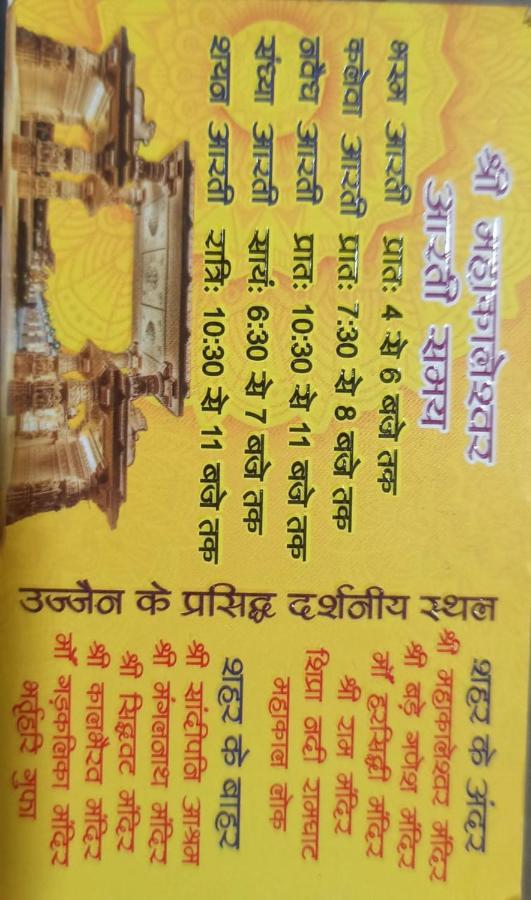 श्री महाकालेश्वर
आरती समय
भस्म आरती प्रातः 4 से 6 बजे तक
कलेवा आरती प्रातः 7:30 से 8 बजे तक
नैवेद्य आरती प्रातः 10:30 से 11 बजे तक
संध्या आरती सायं: 6:30 से 7 बजे तक
शयन आरती रात्रि: 10:30 से 11 बजे तक
उज्जैन के प्रसिद्ध दर्शनीय स्थल
शहर के अंदर
श्री महाकालेश्वर मंदिर
श्री बड़े गणेश मंदिर
माँ हरसिद्धी मंदिर
श्री राम मंदिर
शिप्रा नदी रामघाट
महाकाल लोक
शहर के बाहर
श्री सांदीपनि आश्रम
श्री मंगलनाथ मंदिर
श्री सिद्धवट मंदिर
श्री कालभैरव मंदिर
माँ गड़कलिका मंदिर
भर्तृहरि गुफा